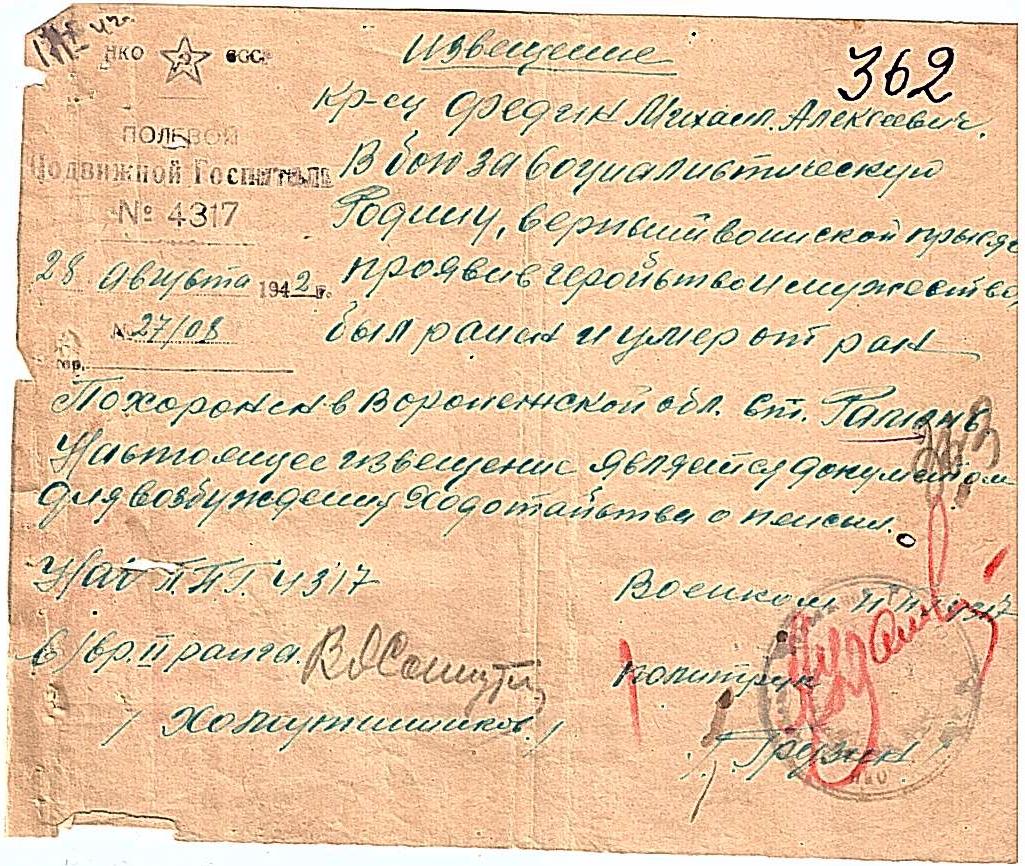 Извещение
362
НКО СССР
ПОЛЕВОЙ
Подвижной Госпиталь
№ 4317
28 августа 1942 г.
№ 27/08
гор.
Кр-ец Федин Михаил Алексеевич.
В бою за социалистическую
Родину, верный воинской присяге
проявив геройство и мужество,
был ранен и умер от ран
Похоронен в Воронежской обл. ст. Рамонь
Настоящее извещение является документом
для возбуждения ходотайства о пенсии.
Нач П.П.Г. 4317
в/вр. II ранга.
Военком П.П.Г. 4317
политрук
/Грузин/